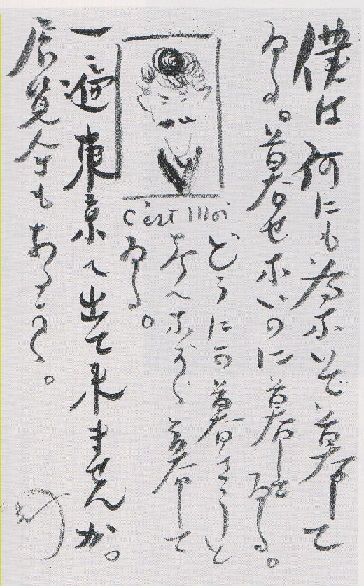 僕は何にも為ないで暮して
ゐる。暮せないのに暮してゐる。
どうにか暮さうと
考へながら暮して
ゐる。
C'est Moi
一遍東京へ出て来ませんか。
展覧会もあるし、